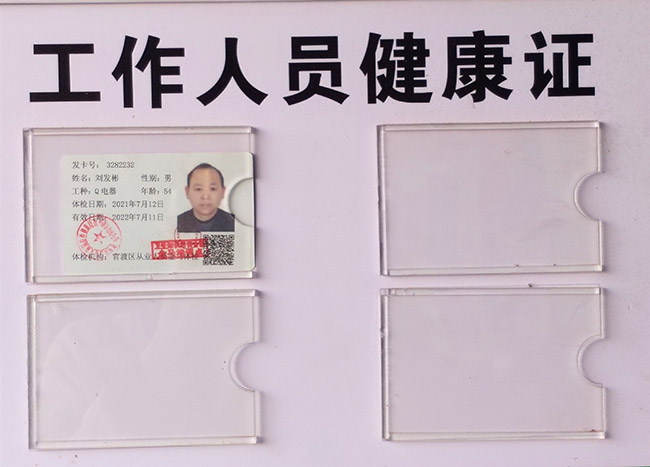 工作人员健康证
发卡号： 3282232
姓名：刘发彬 性别：男
工种：Q电器 年龄：54
体检日期：2021年7月12日
有效日期：2022年7月11日
体检机构：官渡区从业